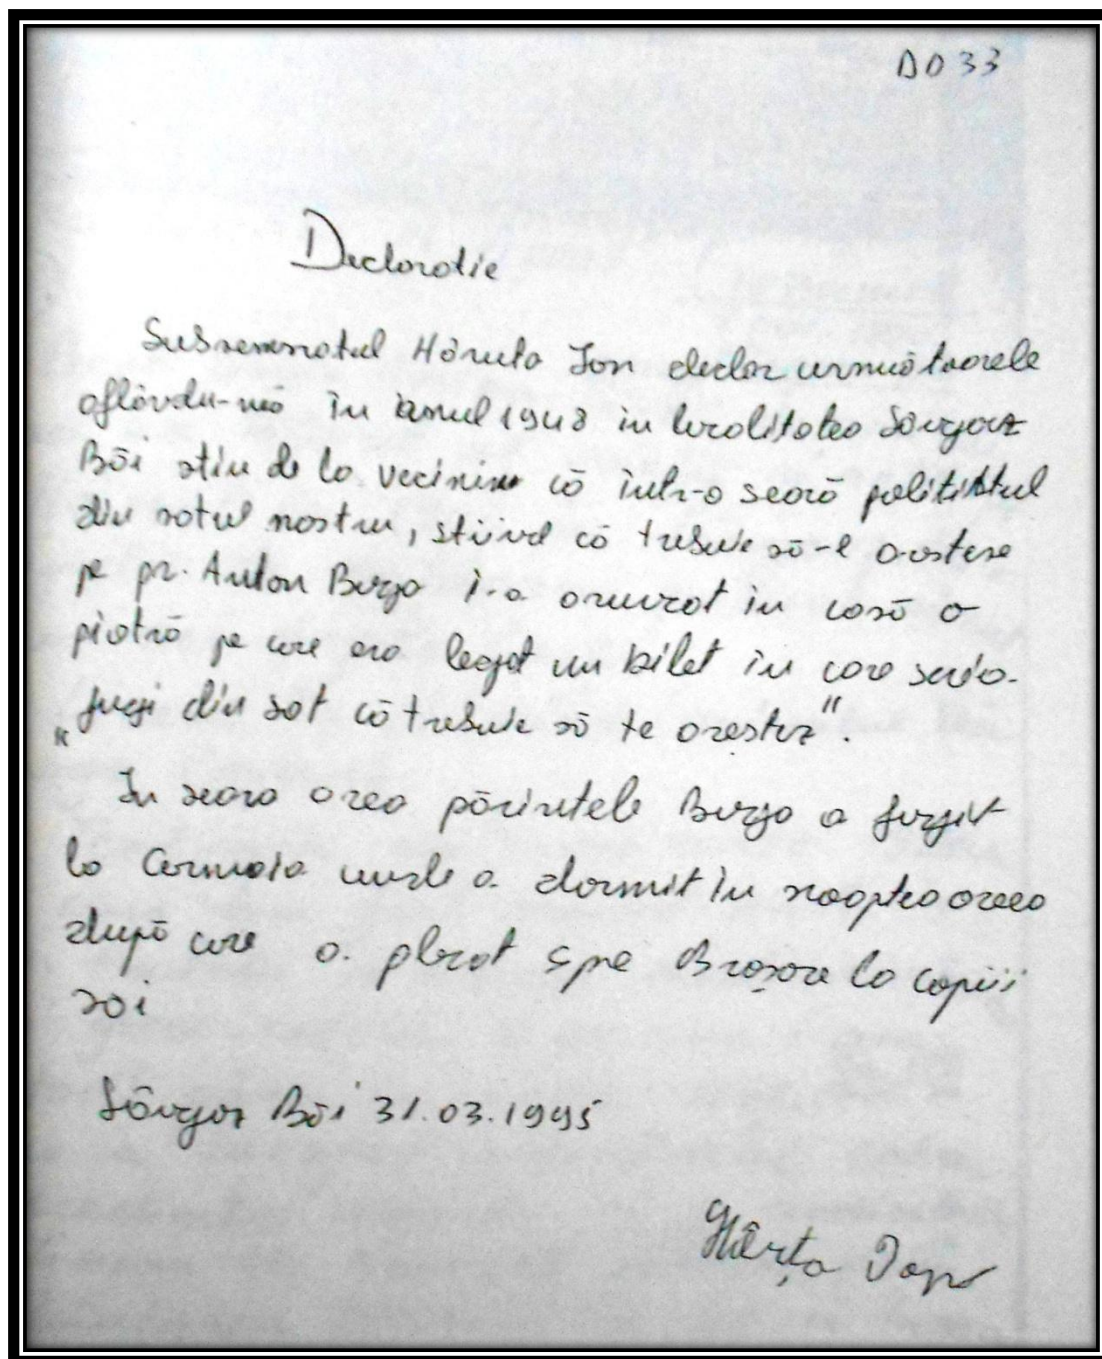 DO 33
Declaratie
Subsemnatul Hâruta Ion declar urmatoarele
aflându-mă în anul 1948 in localitatea Sângorz
Băi stiu de la vecini că într-o seară politistul
din satul nostru, stiind că trebuie să-l aresteze
pe pr. Anton Burja i-a aruncat in casă o
piatră pe care era legat un bilet in care scria.
„fugi din sat că trebuie să te arestez".
In seara aceea părintele Burja a fugit
la Cormaia unde a dormit in noaptea aceea
după care a plecat spre Brasov la copiii
săi
Sângorz Băi 31.03.1995
Hârța Ion